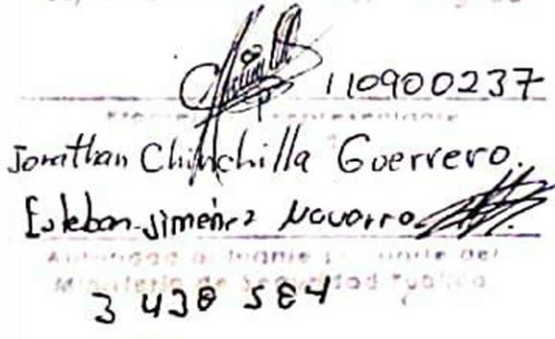 110900237
Jonathan Chinchilla Guerrero.
Esteban Jiménez Navarro
Ministerio de Seguridad Publica
3 438 584